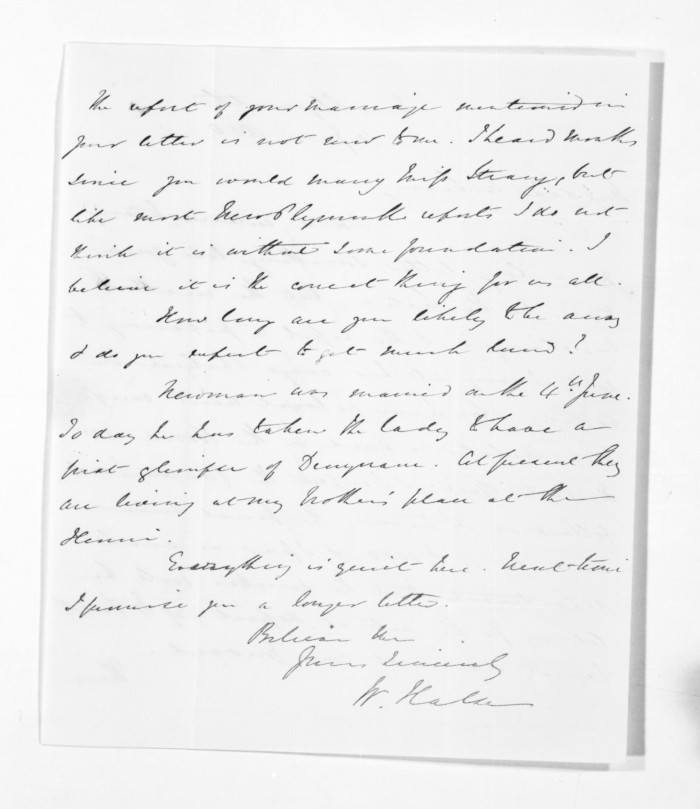 The report of your marriage mentioned in
your letter is not new to me. I heard months
since you would marry Miss Strang, but
like most New Plymouth reports I do not
think it is without some foundation. I
believe it is the correct thing for us all.
How long are you likely to be away
& do you expect to get much land?
Newman was married on the 4th June.
To day he has taken the lady to have a
first glimpse of . At present they
are living at my brother's place at the
Henui.
Everything is quiet here. Next time
I promise you a longer letter.
Believe me
Yours Sincerely
W. Halse